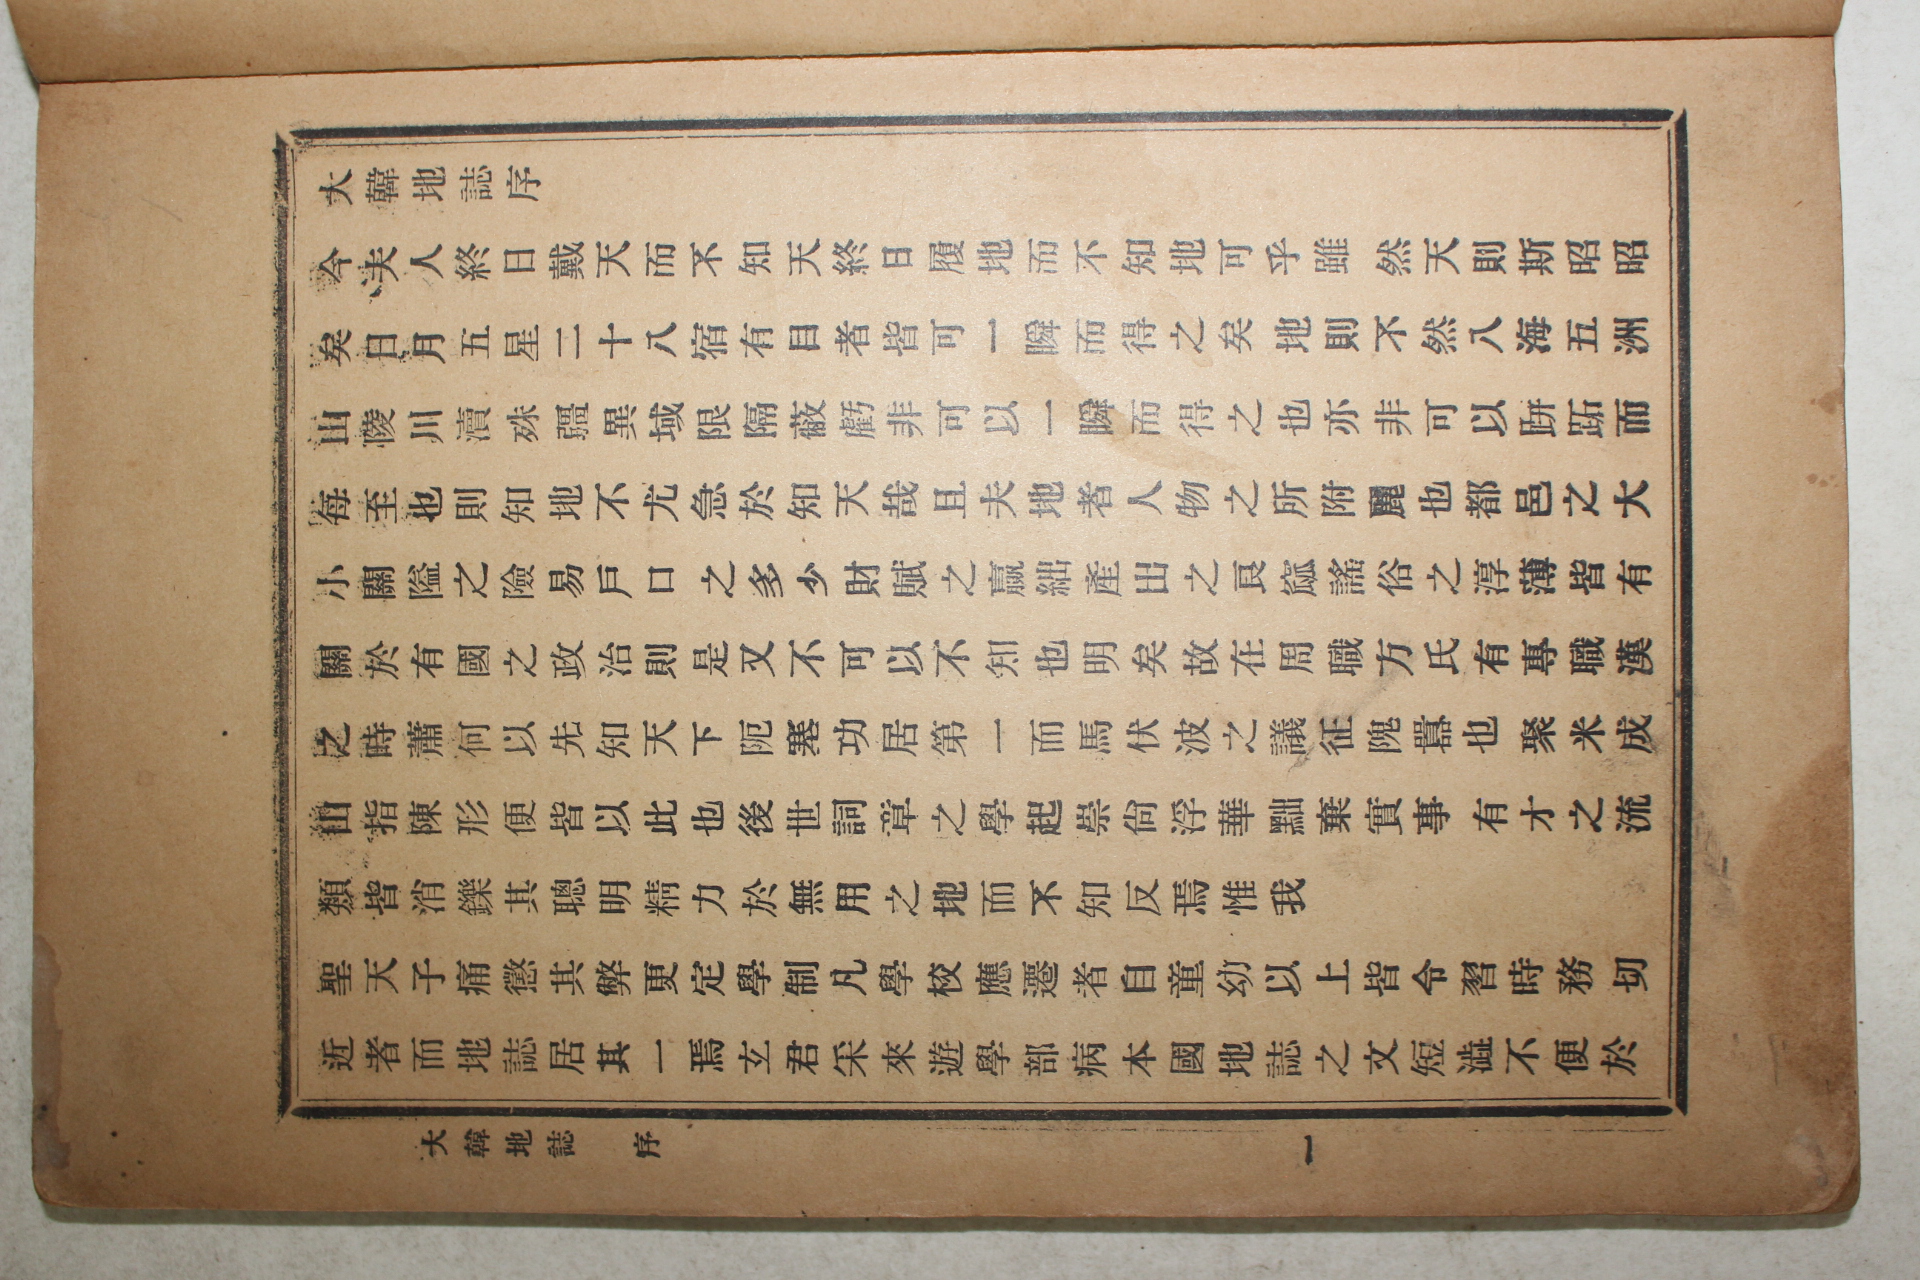 大韓地誌序
今夫人終日戴天而不知天終日履地而不知地可乎雖然天則斯昭昭
矣日月五星二十八宿有目者皆可一瞬而得之矣地則不然八海五洲
山陵川瀆殊疆異域限隔蔽虧非可以一瞬而得之也亦非可以跰跖而
每至也則知地不尤急於知天哉且夫地者人物之所附麗也都邑之大
小關隘之險易戶口之多少財賦之贏絀產出之良窳謠俗之淳薄皆有
關於有國之政治則是又不可以不知也明矣故在周職方氏有專職漢
之時蕭何以先知天下阨塞功居第一而馬伏波之議征隗囂也聚米成
山指陳形便皆以此也後世詞章之學起崇尙浮華黜棄實事有才之流
類皆消鑠其聰明精力於無用之地而不知反焉惟我
聖天子痛懲其弊更定學制凡學校應遷者自童幼以上皆令習時務切
近者而地誌居其一焉玄君采來遊學部病本國地誌之文短澁不便於
大韓地誌 序 一